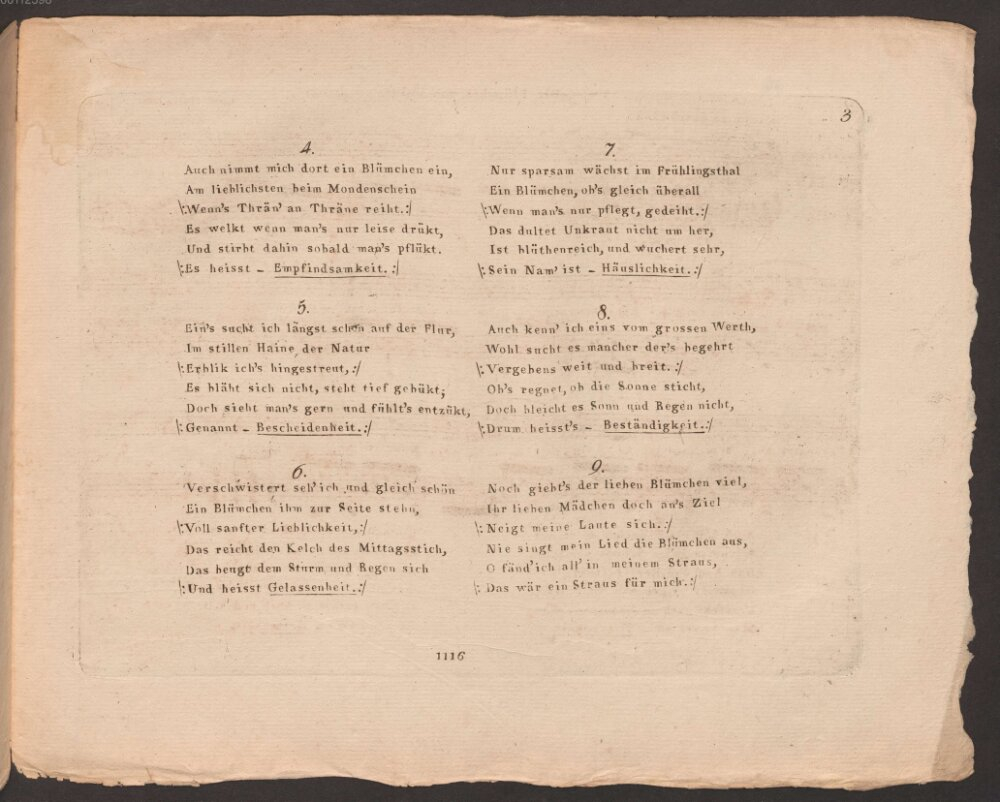 3
4.
Auch nimmt mich dort ein Blümchen ein,
Am lieblichsten beim Mondenschein
|:Wenn's Thrän' an Thräne reiht.:|
Es welkt wenn man's nur leise drükt,
Und stirbt dahin sobald man's pflükt.
|:Es heisst – Empfindsamkeit.:|
5.
Ein's sucht ich längst schon auf der Flur,
Im stillen Haine der Natur
|:Erblik ich's hingestreut,:|
Es bläht sich nicht, steht tief gebükt;
Doch sieht man's gern und fühlt's entzükt,
|:Genannt – Bescheidenheit.:|
6.
Verschwistert seh' ich und gleich schön
Ein Blümchen ihm zur Seite stehn,
|:Voll sanfter Lieblichkeit,:|
Das reicht den Kelch des Mittagsstich,
Das beugt dem Sturm und Regen sich
|:Und heisst Gelassenheit.:|
7.
Nur sparsam wächst im Frühlingsthal
Ein Blümchen, ob's gleich überall
|:Wenn man's nur pflegt, gedeiht.:|
Das dultet Unkraut nicht um her,
Ist blüthenreich, und wuchert sehr,
|:Sein Nam' ist – Häuslichkeit.:|
8.
Auch kenn' ich eins vom grossen Werth,
Wohl sucht es mancher der's begehrt
|:Vergebens weit und breit.:|
Ob's regnet, ob die Sonne sticht,
Doch bleicht es Sonn und Regen nicht,
|:Drum heisst's – Beständigkeit.:|
9.
Noch giebt's der lieben Blümchen viel,
Ihr lieben Mädchen doch an's Ziel
|:Neigt meine Laute sich.:|
Nie singt mein Lied die Blümchen aus,
O fänd' ich all' in meinem Straus,
|:Das wär ein Straus für mich.:|
1116